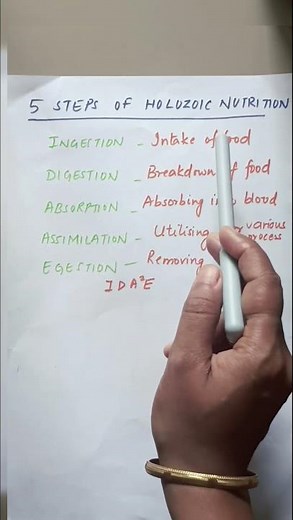 5 STEPS OF HOLOZOIC NUTRITION
INGESTION - Intake of food
DIGESTION - Breakdown of food
ABSORATION - Absorbing into blood
ASSIMILATION - Utilising various
process
EGESTION - Removing
IDA²E